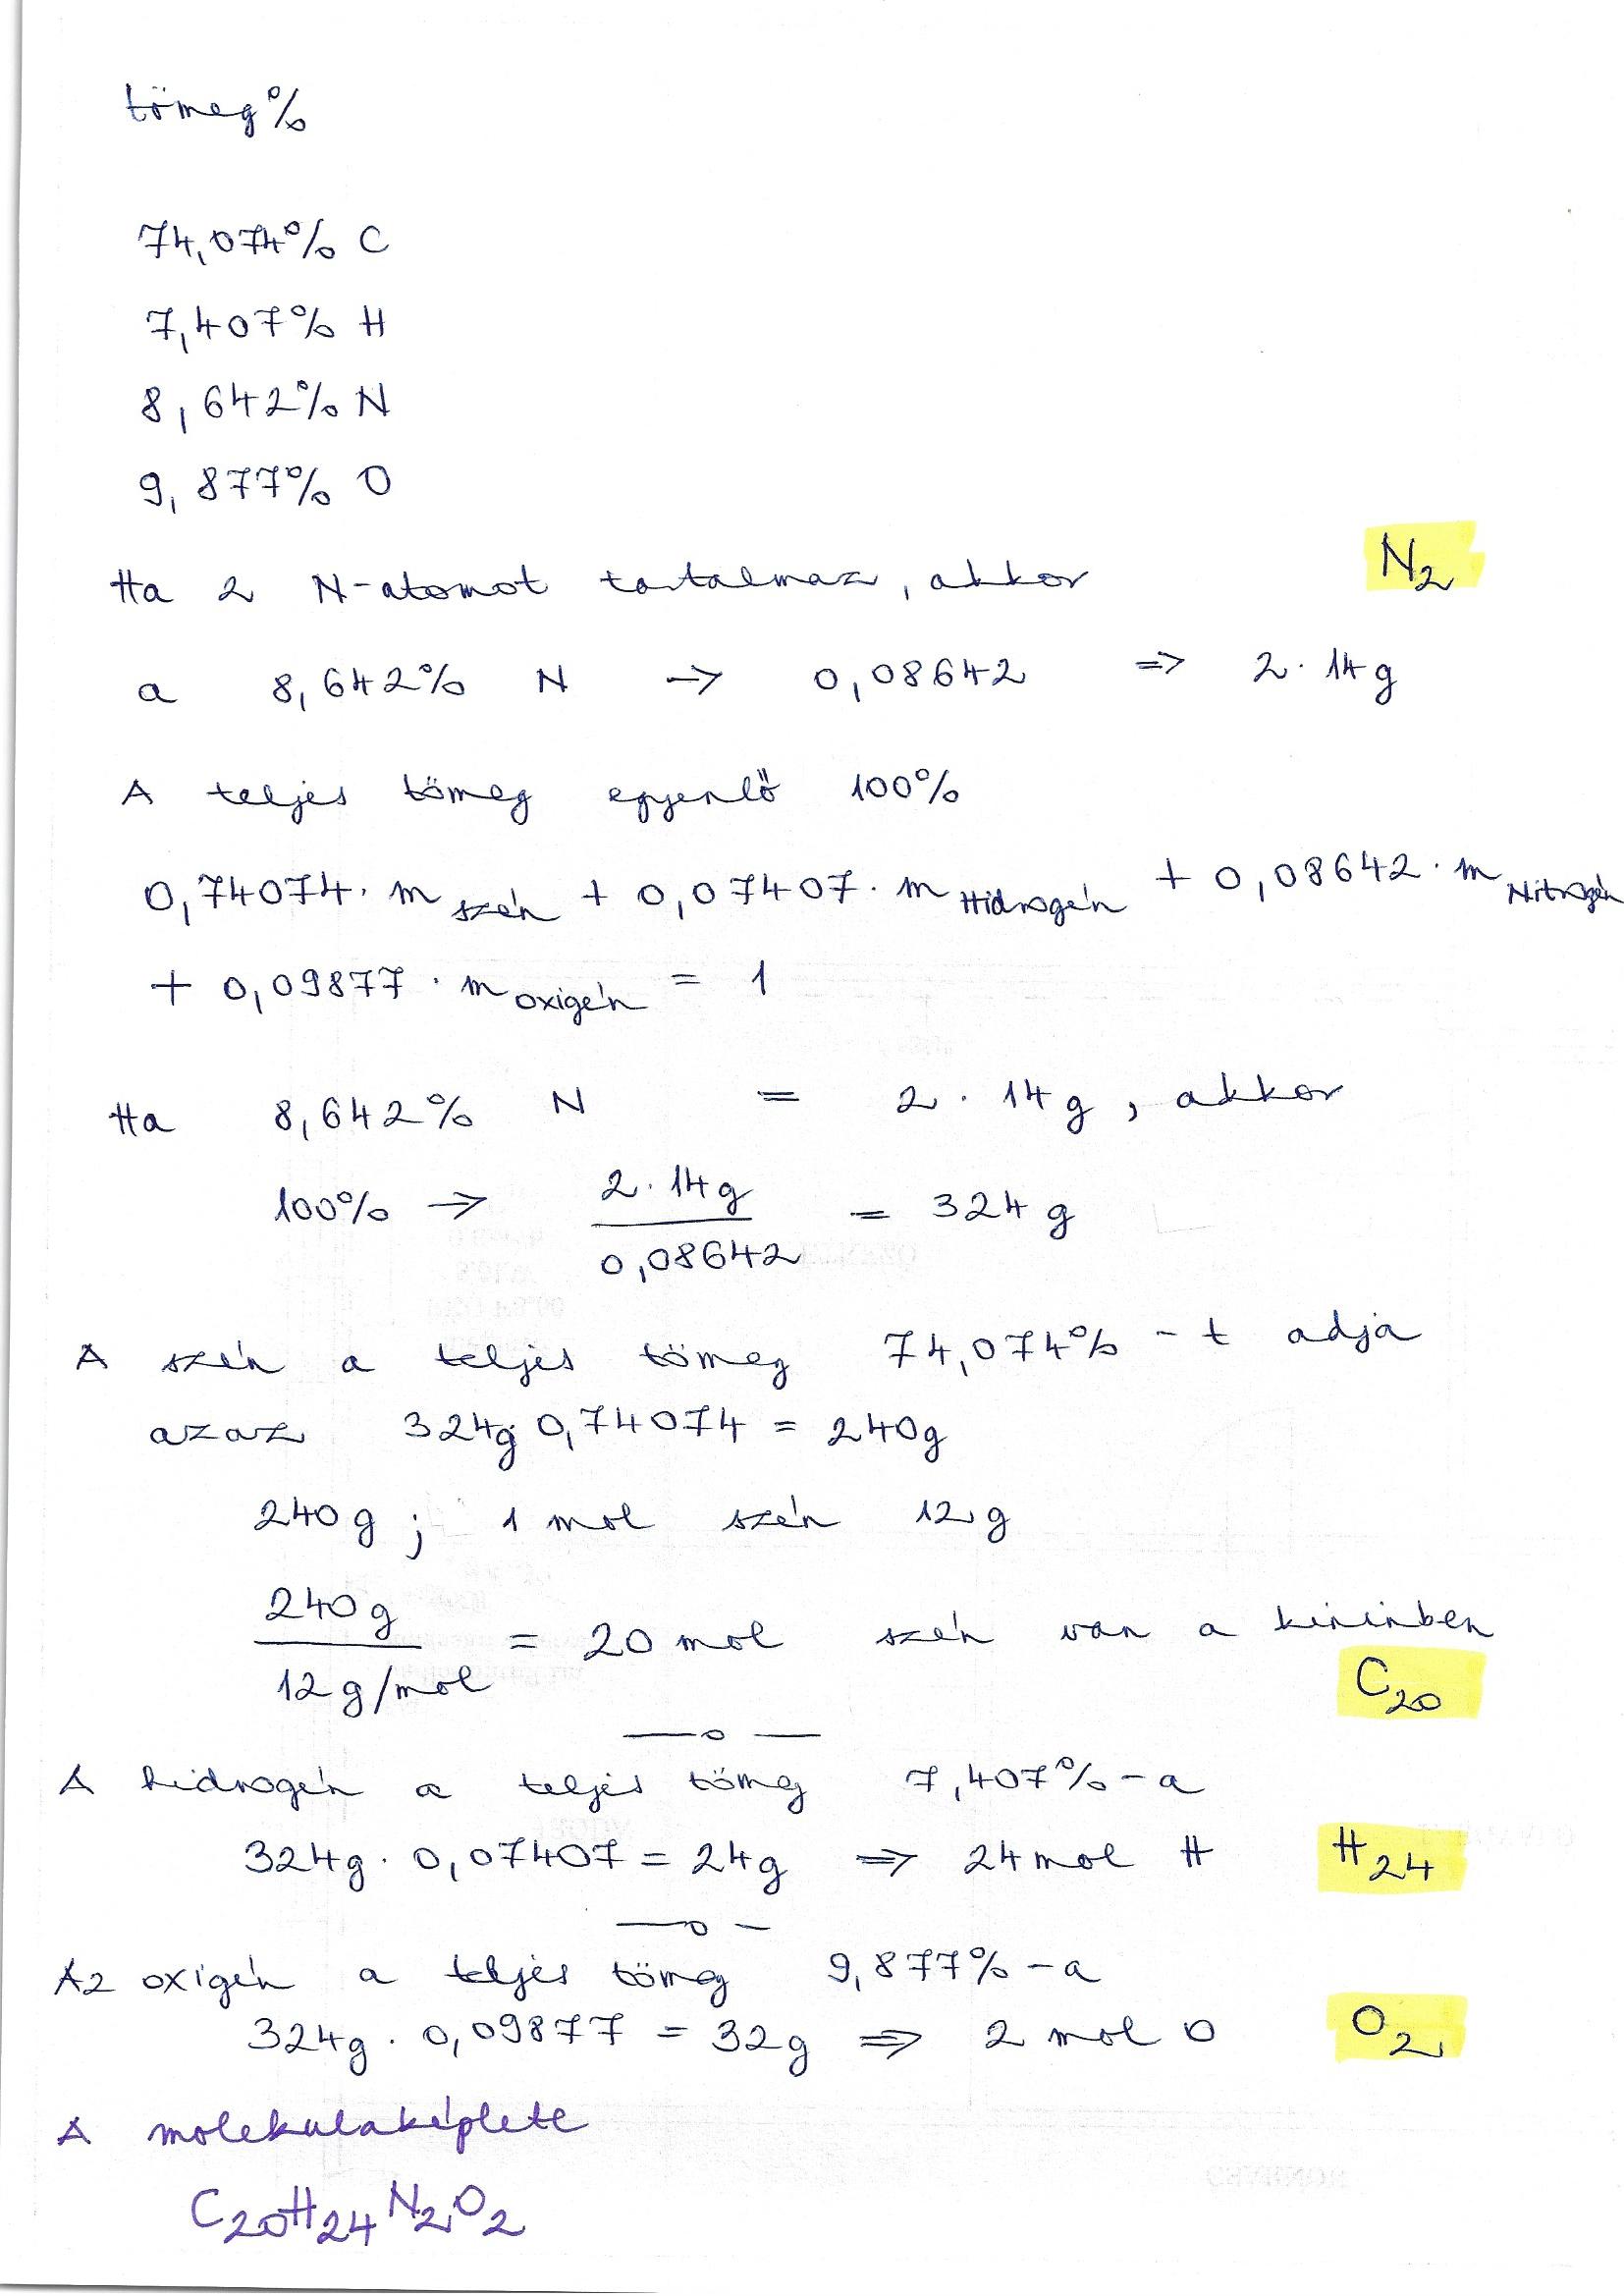 tömeg%
74,074% C
7,407% H
8,642% N
9,877% O
Ha 2 N-atomot tartalmaz, akkor N₂
a 8,642% N → 0,08642 ⇒ 2·14g
A teljes tömeg egyenlő 100%
0,74074·m szén + 0,07407·m Hidrogén + 0,08642·m Nitrogén
+ 0,09877·m oxigén = 1
Ha 8,642% N = 2·14g, akkor
100% → 2·14g / 0,08642 = 324 g
A szén a teljes tömeg 74,074%-t adja
azaz 324g·0,74074 = 240g
240g; 1 mol szén 12g
240g / 12g/mol = 20 mol szén van a kininben
C₂₀
A hidrogén a teljes tömeg 7,407%-a
324g·0,07407 = 24g ⇒ 24 mol H H₂₄
Az oxigén a teljes tömeg 9,877%-a
324g·0,09877 = 32g ⇒ 2 mol O O₂
A molekulaképlete
C₂₀H₂₄N₂O₂